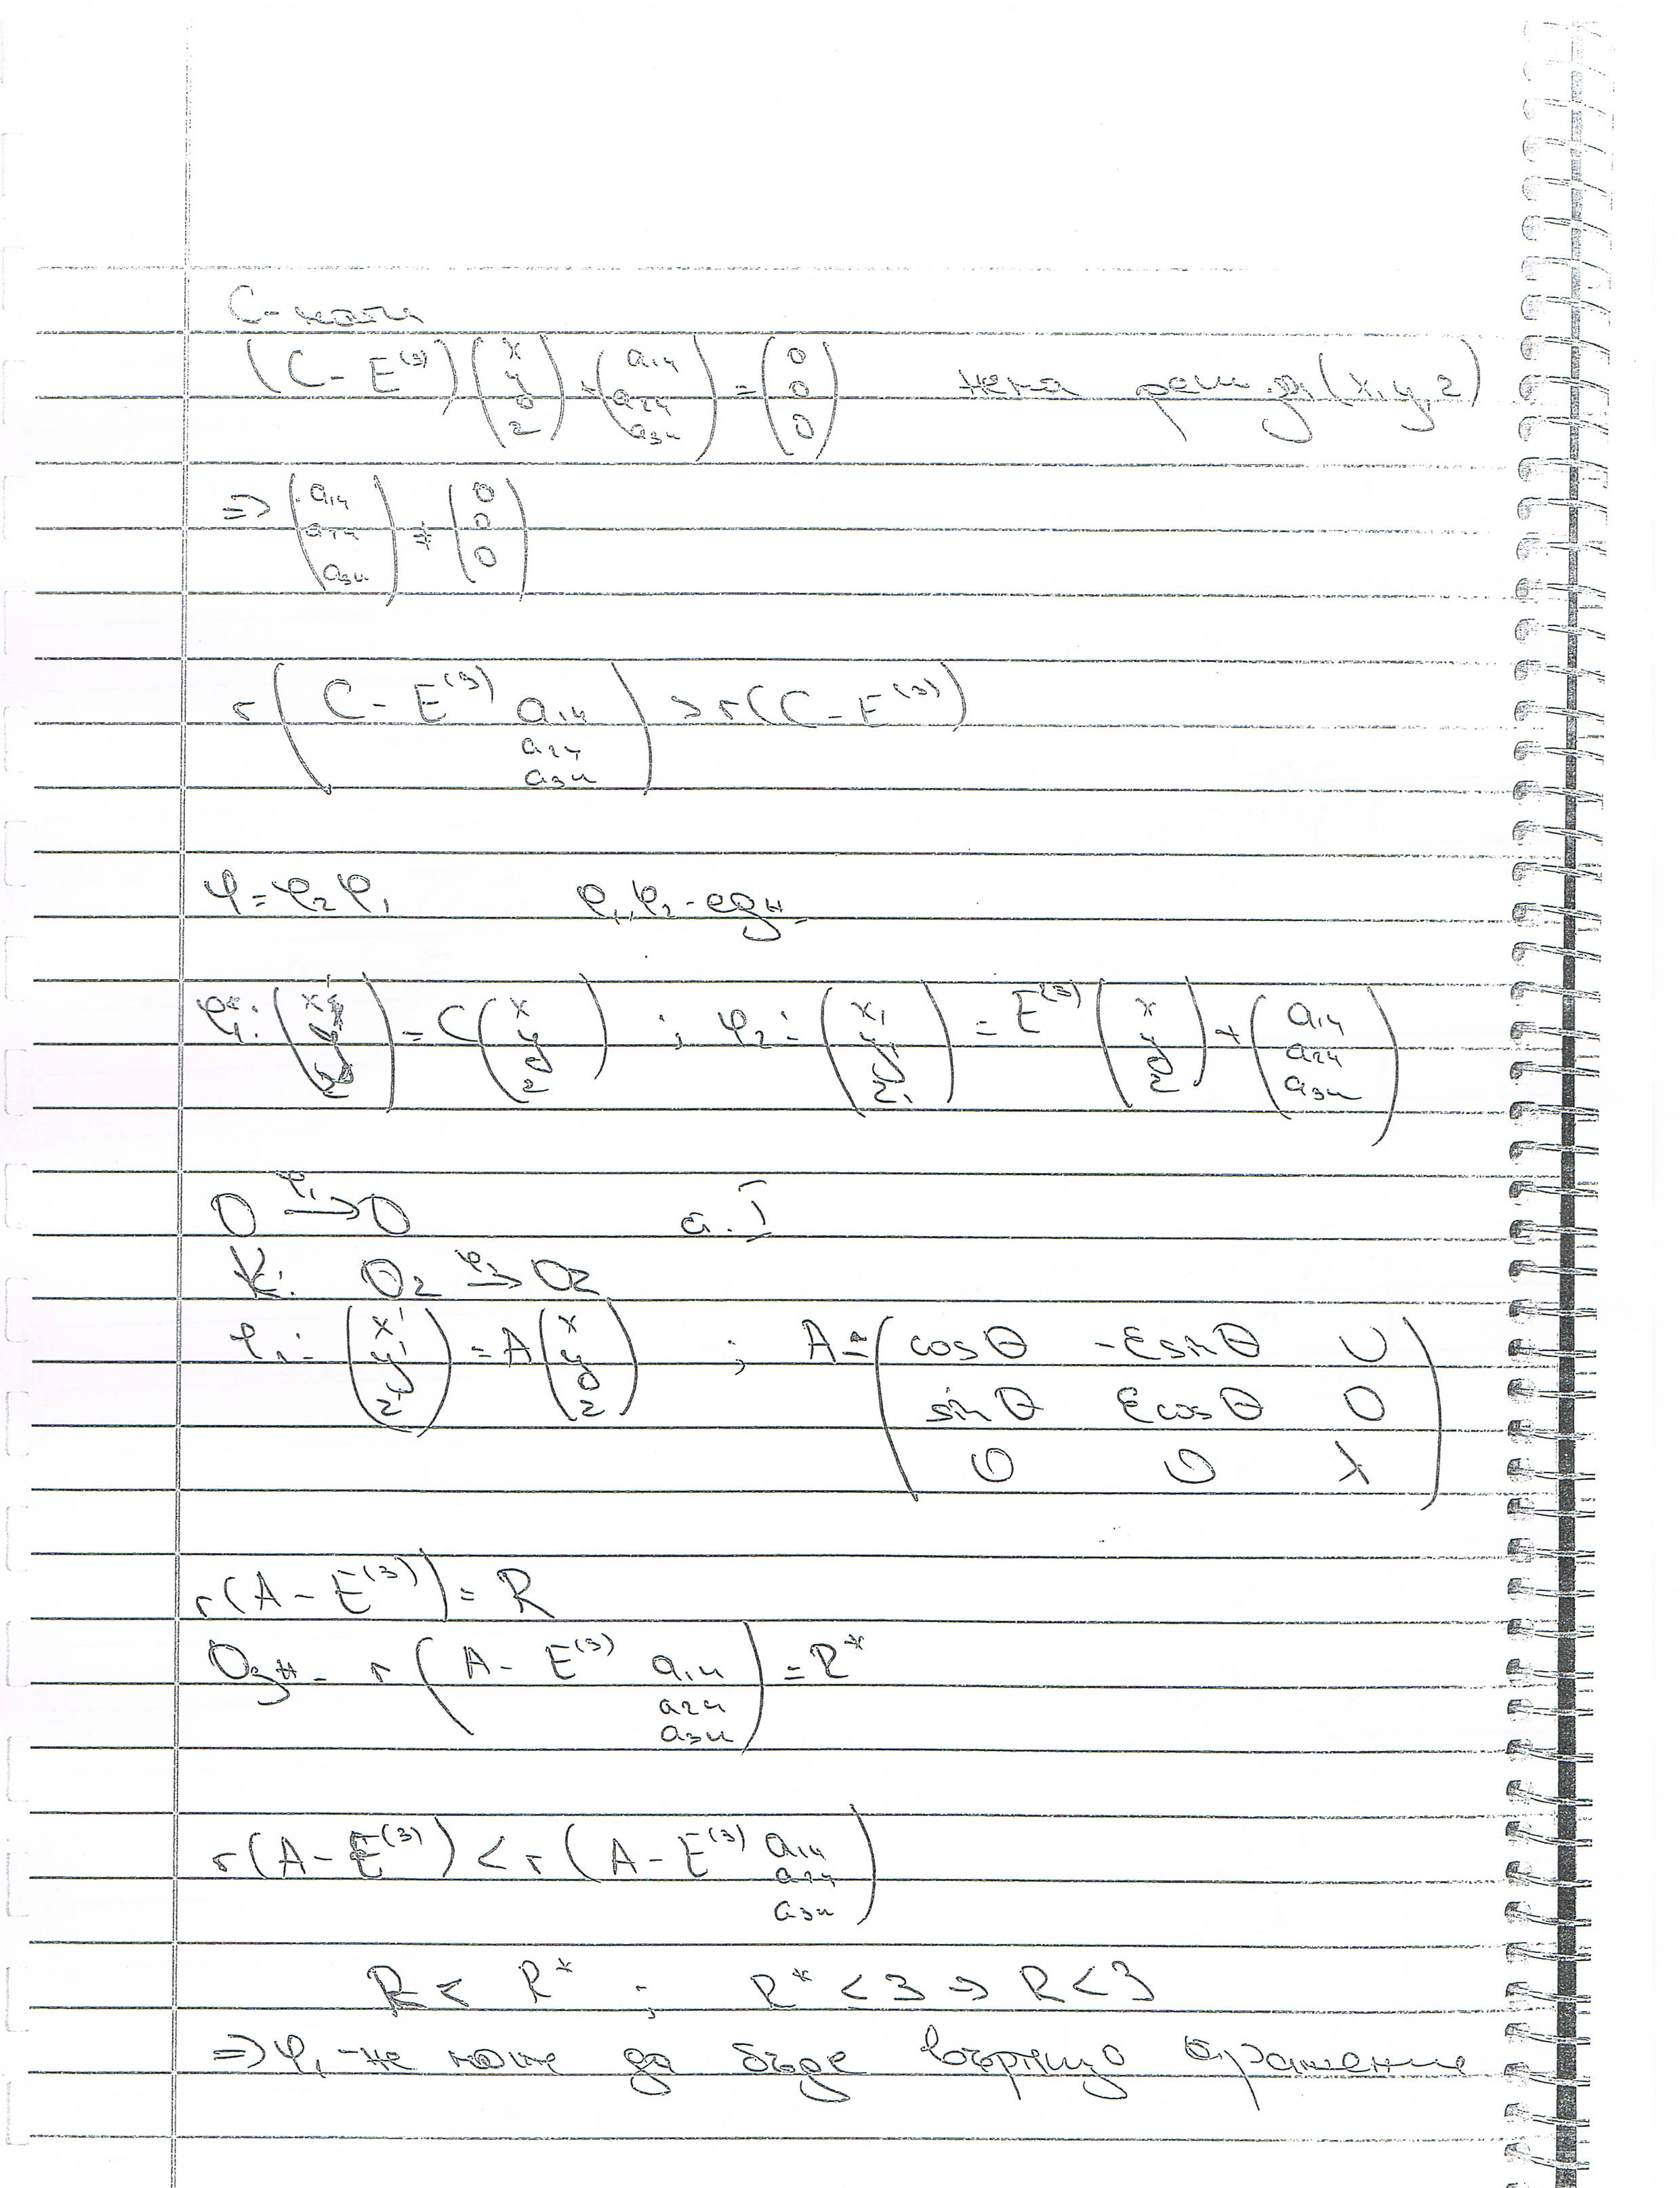 C-
(C - E⁽³⁾) (x y z) + (a₁₄ a₂₄ a₃₄) = (0 0 0) няма реш. за (x, y, z)
=> (a₁₄ a₂₄ a₃₄) ≠ (0 0 0)
r (C - E⁽³⁾ a₁₄ a₂₄ a₃₄) > r(C - E⁽³⁾)
φ = φ₂φ₁ φ₁, φ₂ - едн.
φ₁: (x' y' z') = C (x y z) ; φ₂: (x' y' z') = E⁽³⁾ (x y z) + (a₁₄ a₂₄ a₃₄)
O -φ₁-> O a. I
K: Oz -φ₁-> Oz
φ₁: (x' y' z') = A (x y z) ; A = (cosθ -εsinθ 0 sinθ εcosθ 0 0 0 λ)
r(A - E⁽³⁾) = R
Озн. r (A - E⁽³⁾ a₁₄ a₂₄ a₃₄) = R*
r(A - E⁽³⁾) < r (A - E⁽³⁾ a₁₄ a₂₄ a₃₄)
R < R* ; R* < 3 => R < 3
=> φ₁ - не може да бъде въртящо отражение